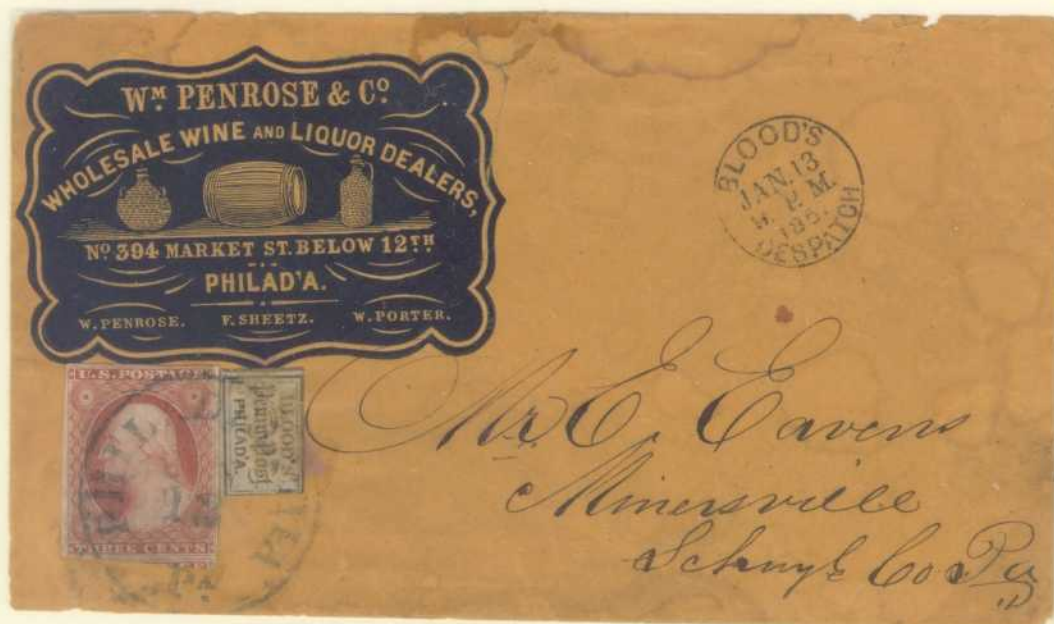 Wᴹ. PENROSE & Cº
WHOLESALE WINE AND LIQUOR DEALERS,
Nº 394 MARKET ST. BELOW 12TH
PHILAD'A.
W. PENROSE. F. SHEETZ. W. PORTER.
BLOOD'S
JAN. 13
P. M.
185
DESPATCH
U.S. POSTAGE
THREE CENTS
BLOOD'S
Penny Post
PHILAD'A.
Mr. E. Eavens
Minersville
Schuyl Co Pa